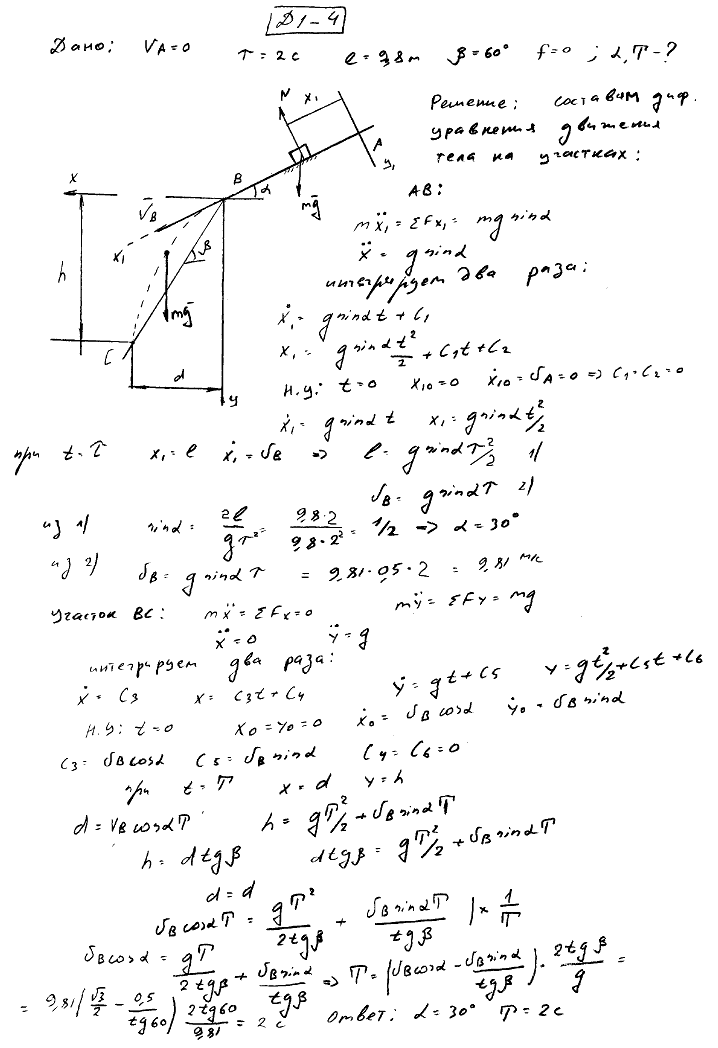 Д1-4
Дано: VA=0 τ=2c l=9,8м β=60° f=0 ; α, T-?
N x1
Решение: составим диф.
уравнения движения
тела на участках:
A
y1
x B α
V̄B mḡ
AB:
mẍ1=ΣFx1= mg sinα
x1 β
ẍ = g sinα
h
интегрируем два раза:
mḡ
ẋ1= g sinα t + C1
C
x1= g sinα t²/2 + C1t+C2
d y
н.у: t=0 x10=0 ẋ10=υA=0 => C1=C2=0
ẋ1= g sinα t x1= g sinα t²/2
при t=τ x1=l ẋ1=υB => l= g sinα τ²/2 1/
υB= g sinα τ 2/
из 1/ sinα = 2l/gτ² = 9,8·2/9,8·2² = 1/2 => α=30°
из 2/ υB= g sinα τ = 9,81·0,5·2 = 9,81 м/с
Участок BC: mẍ=ΣFx=0 mÿ= ΣFy= mg
ẍ=0 ÿ=g
интегрируем два раза:
ẋ= C3 x= C3t+C4 ẏ=gt+C5 y=gt²/2+C5t+C6
н.у: t=0 x0=y0=0 ẋ0= υB cosα ẏ0= υB sinα
C3= υB cosα C5=υB sinα C4=C6=0
при t=T x=d y=h
d=VB cosα T h= gT²/2 + υB sinα T
h= d tgβ d tgβ = gT²/2 + υB sinα T
d=d
υB cosα T = gT²/2tgβ + υB sinα T/tgβ |× 1/T
υB cosα= gT/2tgβ + υB sinα/tgβ => T=(υB cosα - υB sinα/tgβ)·2tgβ/g =
= 9,81(√3/2 - 0,5/tg60) 2tg60/9,81 = 2c ответ: α=30° T=2c